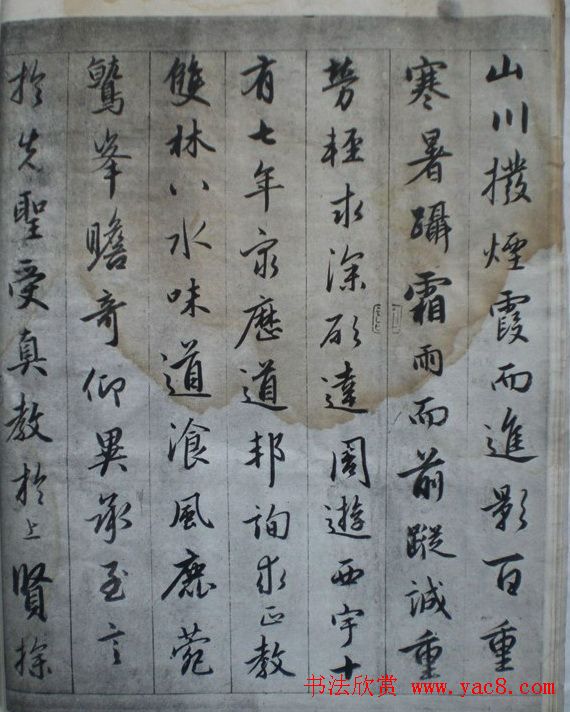 山川撥煙霞而進影百重
寒暑躡霜雨而前蹤誠重
勞輕求深欲達周遊西宇十
有七年窮歷道邦詢求正教
雙林八水味道飡風鹿菀
鷲峯瞻奇仰異承至言
於先聖受真教於上賢探
书法欣赏 www.yac8.com